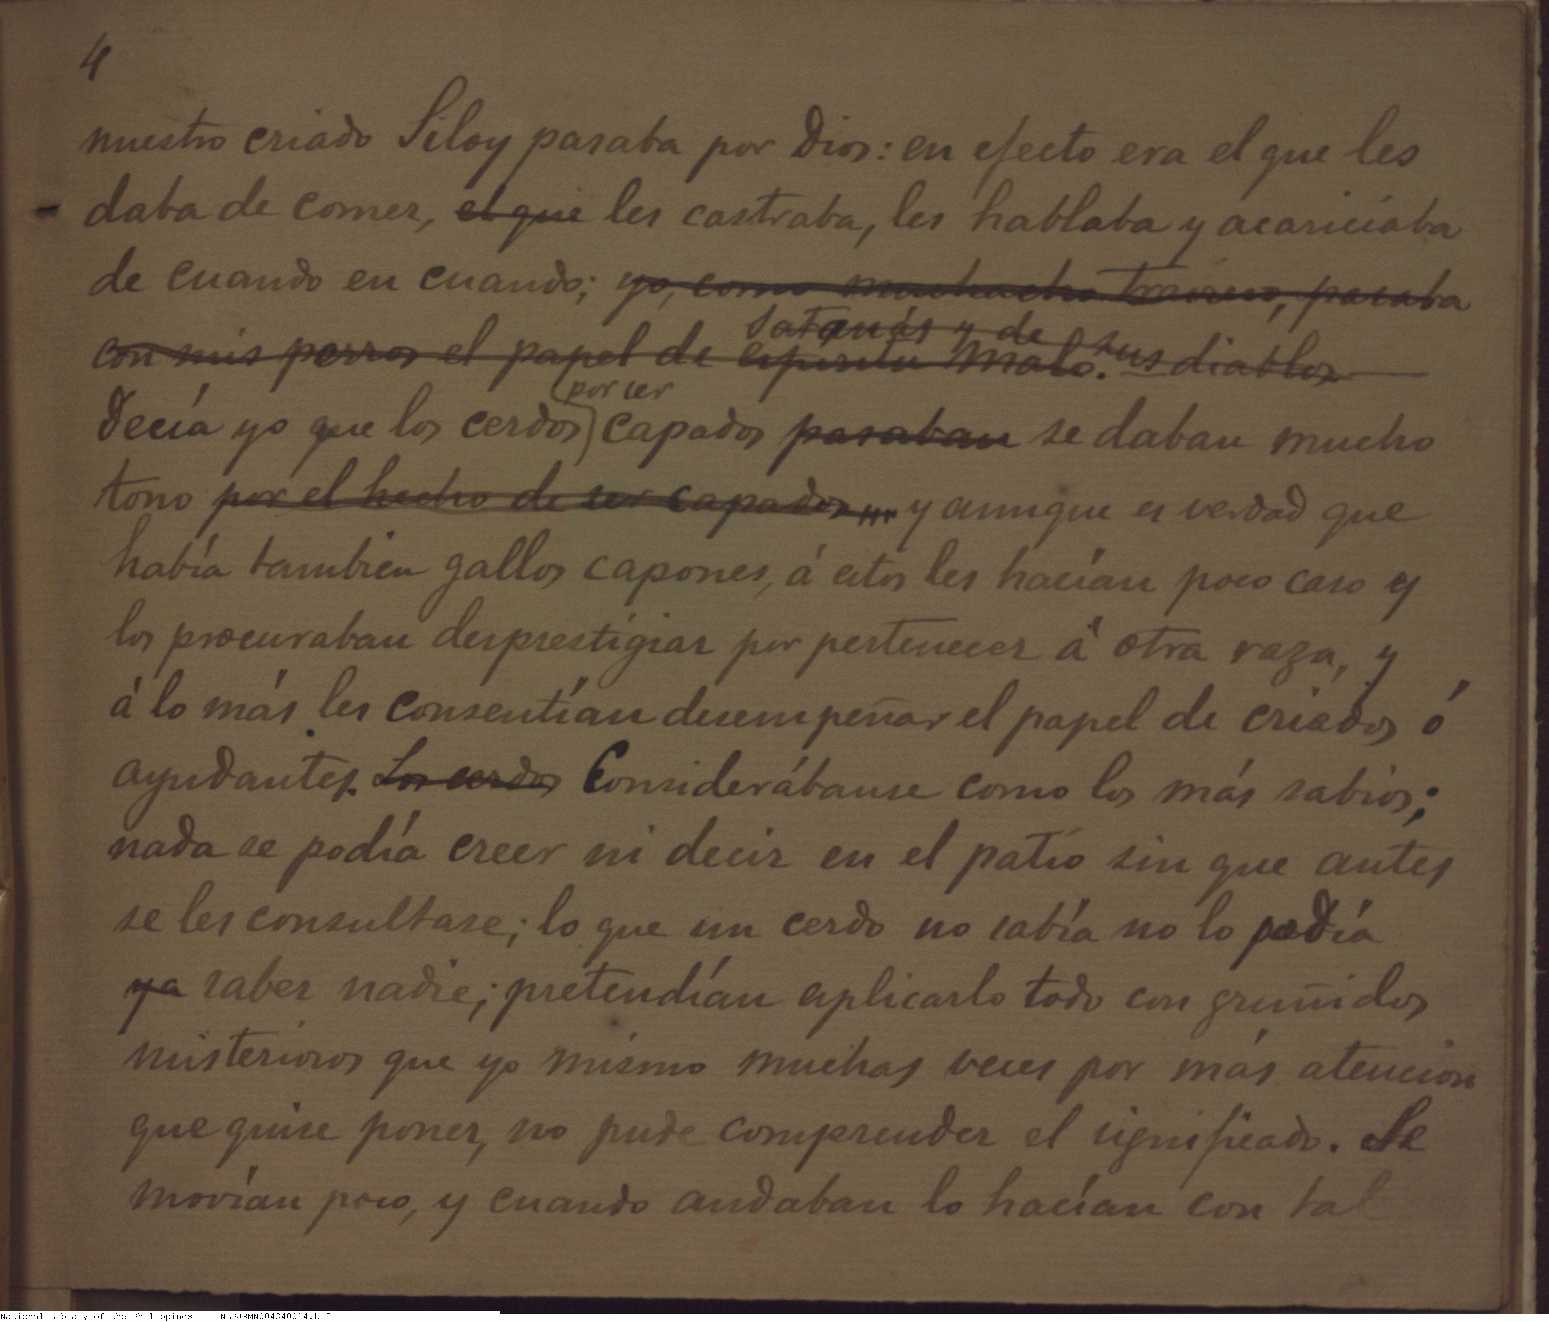 4
nuestro criado Siloy pasaba por Dios: en efecto era el que les
daba de comer, el que les castraba, les hablaba y acariciaba
de cuando en cuando; yo, como muchacho travieso, pasaba
Satanás y de sus diablos
con mis perros el papel de espíritu malo.
por ser
Decía yo que los cerdos capados pasaban se daban mucho
tono por el hecho de ser capados,,, y aunque es verdad que
había tambien gallos capones, á estos les hacían poco caso y
los procuraban desprestigiar por pertenecer á otra raza, y
á lo más les consentían desempeñar el papel de criados ó
ayudantes. Los cerdos Considerábanse como los más sabios;
nada se podía creer ni decir en el patio sin que antes
se les consultase; lo que un cerdo no sabía no lo podía
ya saber nadie; pretendían esplicarlo todo con gruñidos
misteriosos que yo mismo muchas veces por más atencion
que quise poner, no pude comprender el significado. Se
movían poco, y cuando andaban lo hacían con tal
National Library of the Philippines